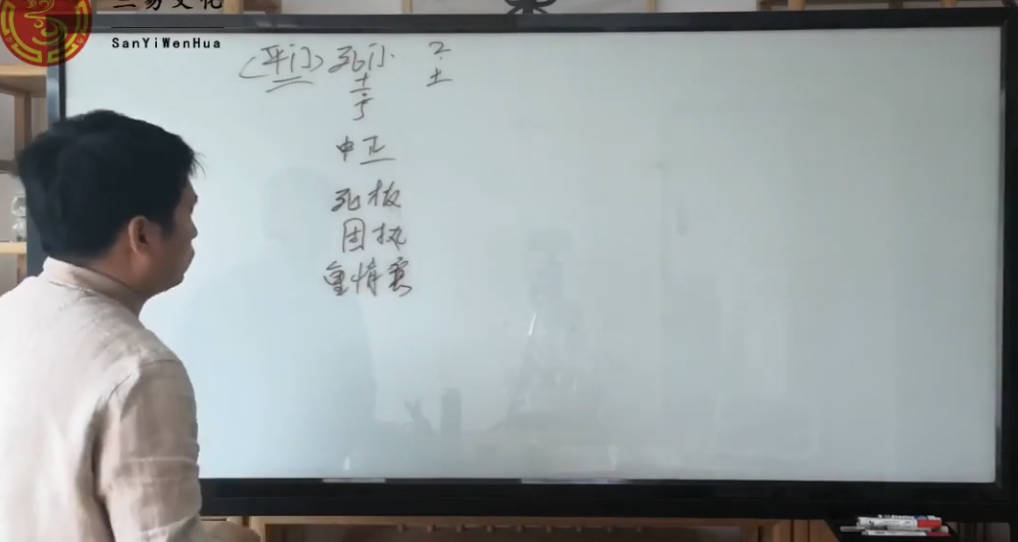 三易文化
SanYiWenHua
(平门) 死门 2
土 土
中正
死板
固执
重情